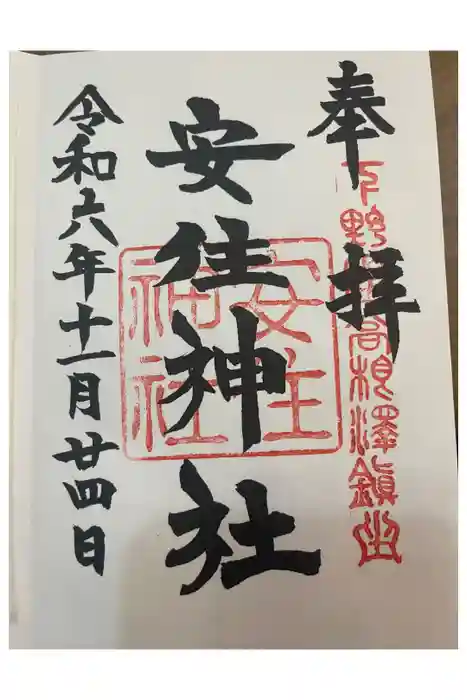 奉拝
下野國高根澤鎮坐
安住神社
安住神社
令和六年十一月廿四日